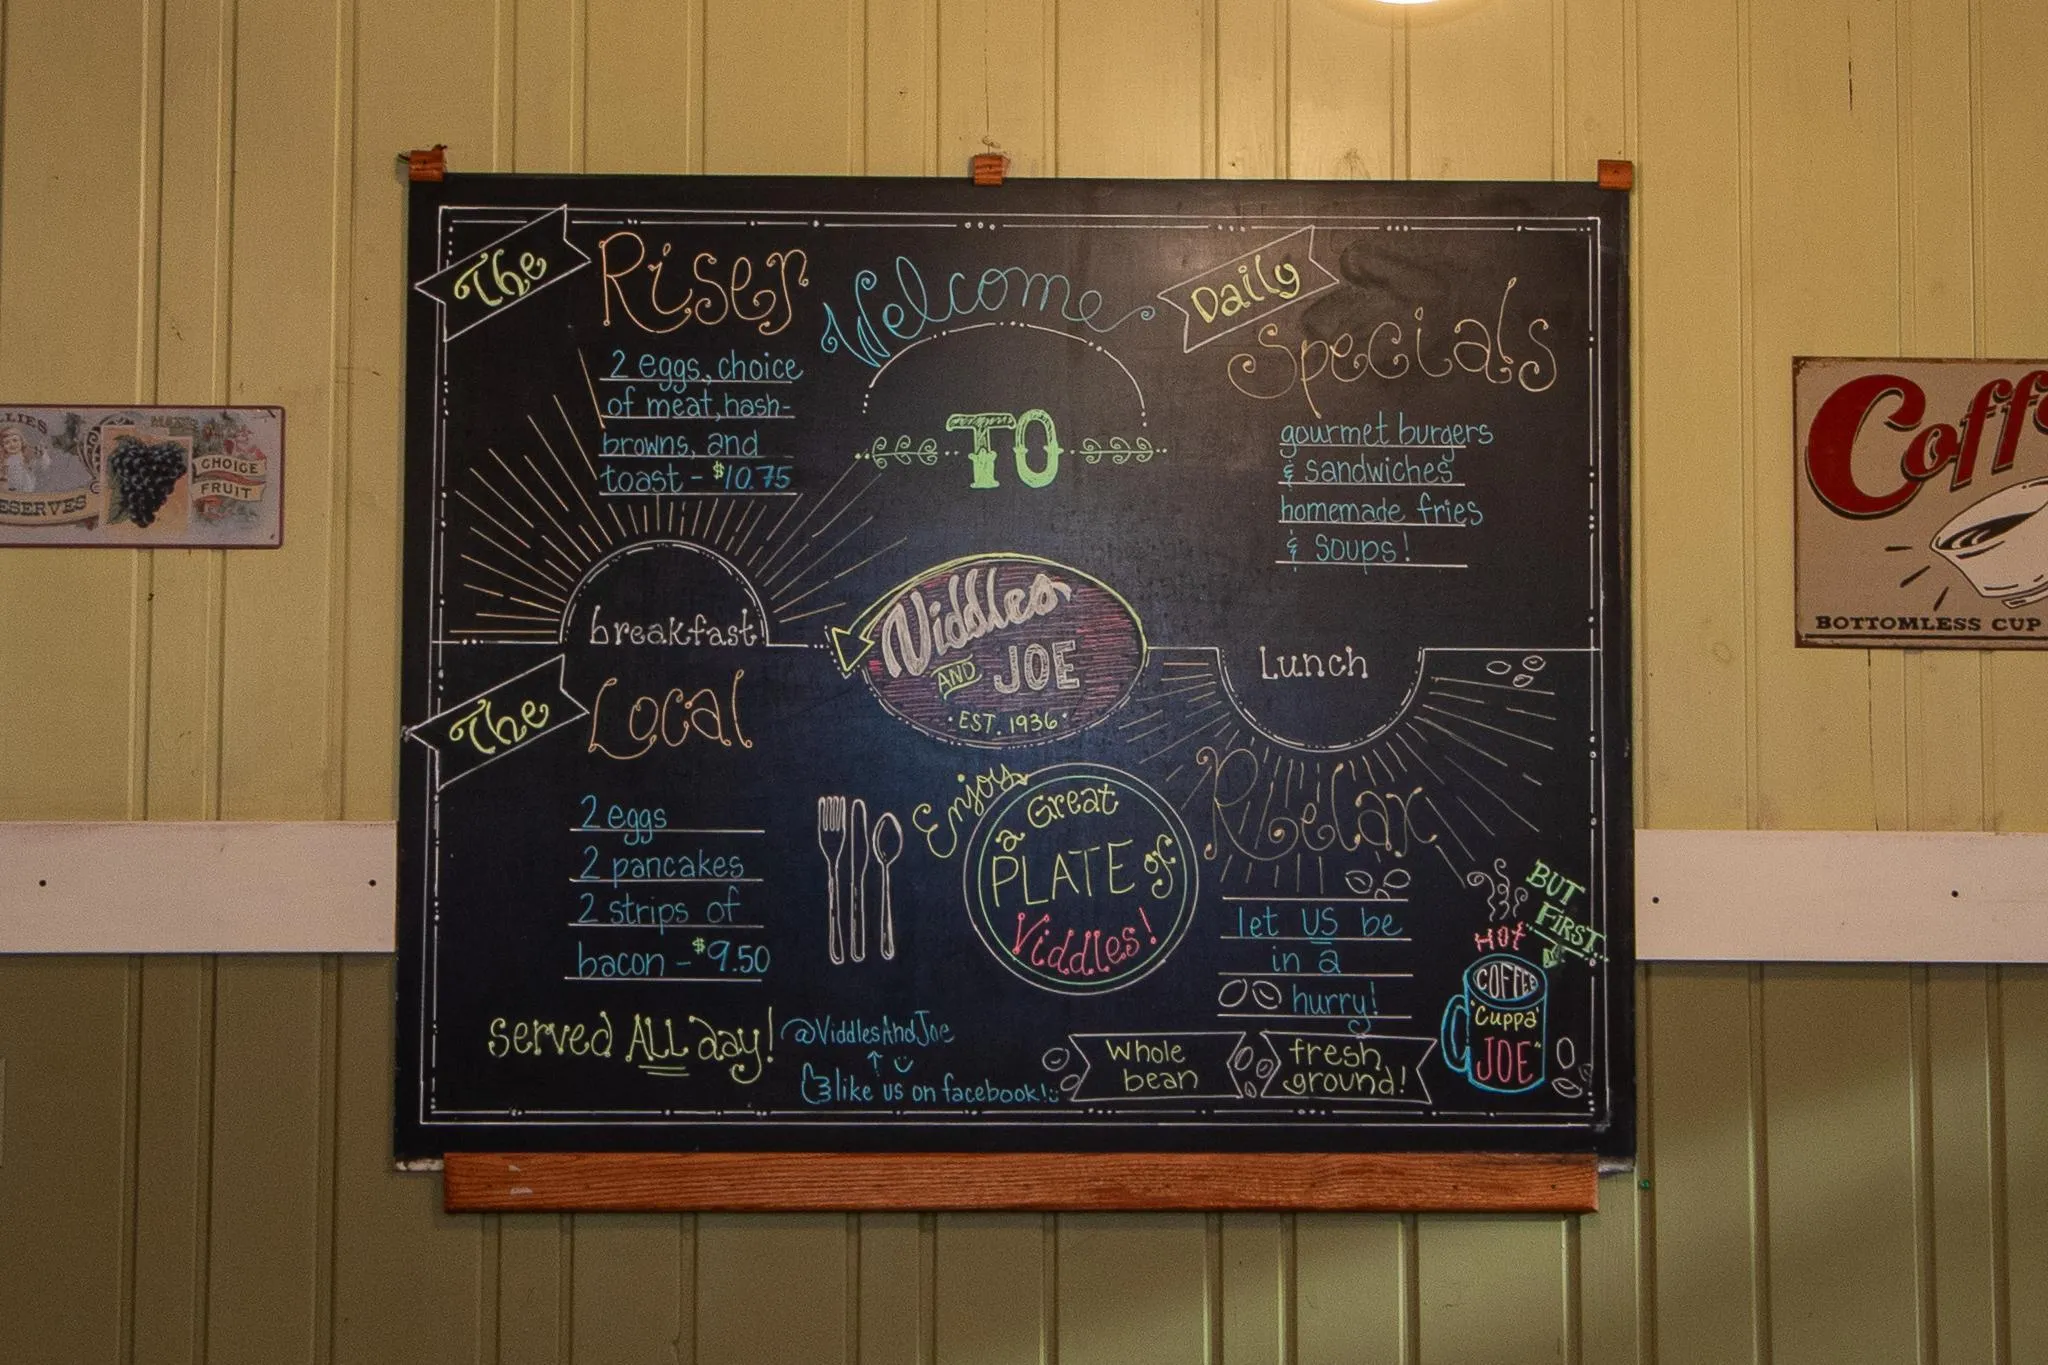 The Riser
2 eggs, choice
of meat, hash-
browns, and
toast - $10.75
breakfast
The Local
2 eggs
2 pancakes
2 strips of
bacon - $9.50
served ALL day!
Welcome
TO
Viddles
AND JOE
· EST. 1936 ·
Enjoy
a Great
PLATE of
Viddles!
@ViddlesAndJoe
like us on facebook!
Daily
Specials
gourmet burgers
& sandwiches
homemade fries
& soups!
Lunch
Relax
let US be
in a
hurry!
Whole
bean
fresh
ground!
BUT
FIRST
HOT
COFFEE
"Cuppa'
JOE"
LLIES
ESERVES
CHOICE
FRUIT
Coffe
BOTTOMLESS CUP